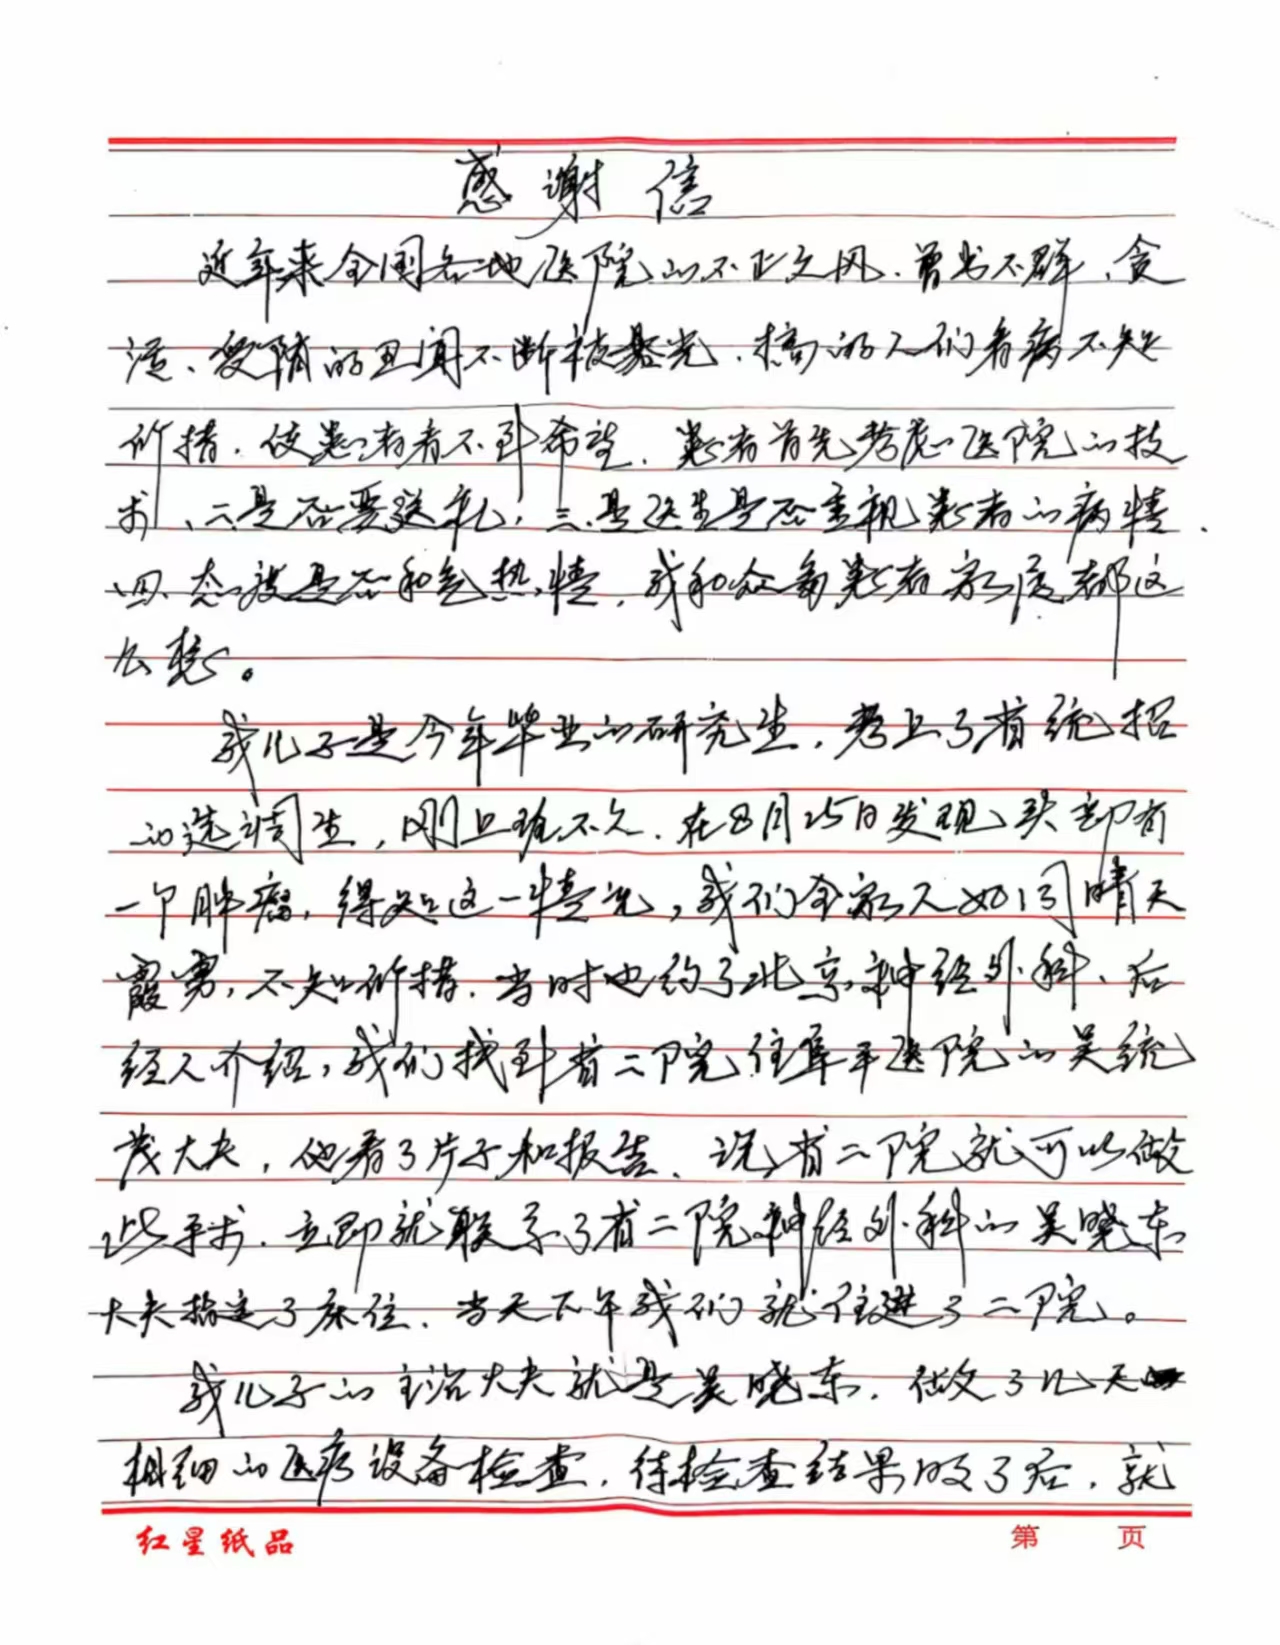 感谢信
近年来全国各地医院的不正之风、曾出不群、贪
污、受贿的丑闻不断被暴光、搞的人们看病不知
所措.使患者看不到希望.患者首先考虑医院的技
术、二是否要送礼,三是医生是否重视患者的病情.
四、态度是否和气热情,我和众多患者家属都这
么想。
我儿子是今年毕业的研究生,考上了省统招
的选调生,刚上班不久.在8月25日发现头部有
一个肿瘤,得知这一情况,我们全家人如同晴天
霹雳,不知所措.当时也约了北京神经外科、后
经人介绍,我们找到省二院住阜平医院的吴统
茂大夫,他看了片子和报告、说省二院就可以做
此手术.立即就联系了省二院神经外科的吴晓东
大夫指定了床位.当天下午我们就住进了二院。
我儿子的主治大夫就是吴晓东.做了几天
相细的医疗设备检查,待检查结果收了后,就
红星纸品
第 页